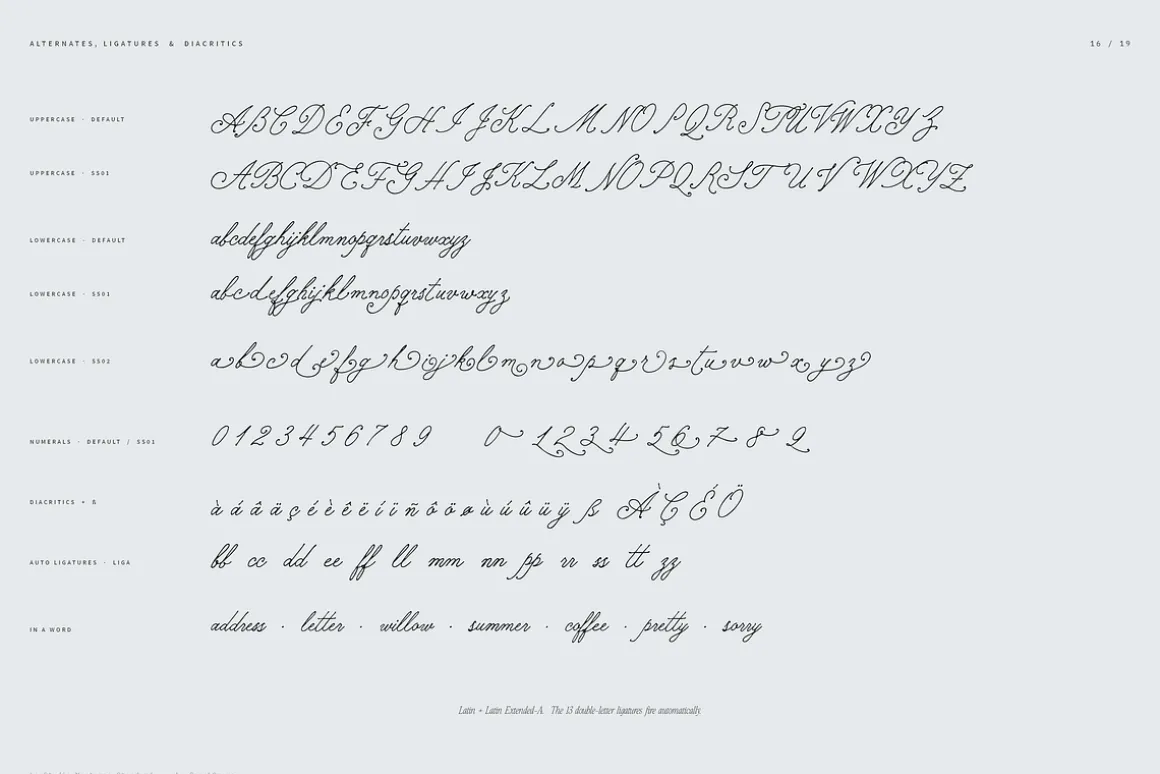 ALTERNATES, LIGATURES & DIACRITICS
16 / 19
UPPERCASE · DEFAULT
ABCDEFGHIJKLMNOPQRSTUVWXYZ
UPPERCASE · SS01
ABCDEFGHIJKLMNOPQRSTUVWXYZ
LOWERCASE · DEFAULT
abcdefghijklmnopqrstuvwxyz
LOWERCASE · SS01
abcdefghijklmnopqrstuvwxyz
LOWERCASE · SS02
a b c d e f g h i j k l m n o p q r s t u v w x y z
NUMERALS · DEFAULT / SS01
0 1 2 3 4 5 6 7 8 9 0 1 2 3 4 5 6 7 8 9
DIACRITICS + ß
à á â ä ç é è ê ë í ï ñ ô ö ø ù ú û ü ÿ ß À Ç É Ö
AUTO LIGATURES · LIGA
bb cc dd ee ff ll mm nn pp rr ss tt zz
IN A WORD
address · letter · willow · summer · coffee · pretty · sorry
Latin + Latin Extended-A. The 13 double-letter ligatures fire automatically.